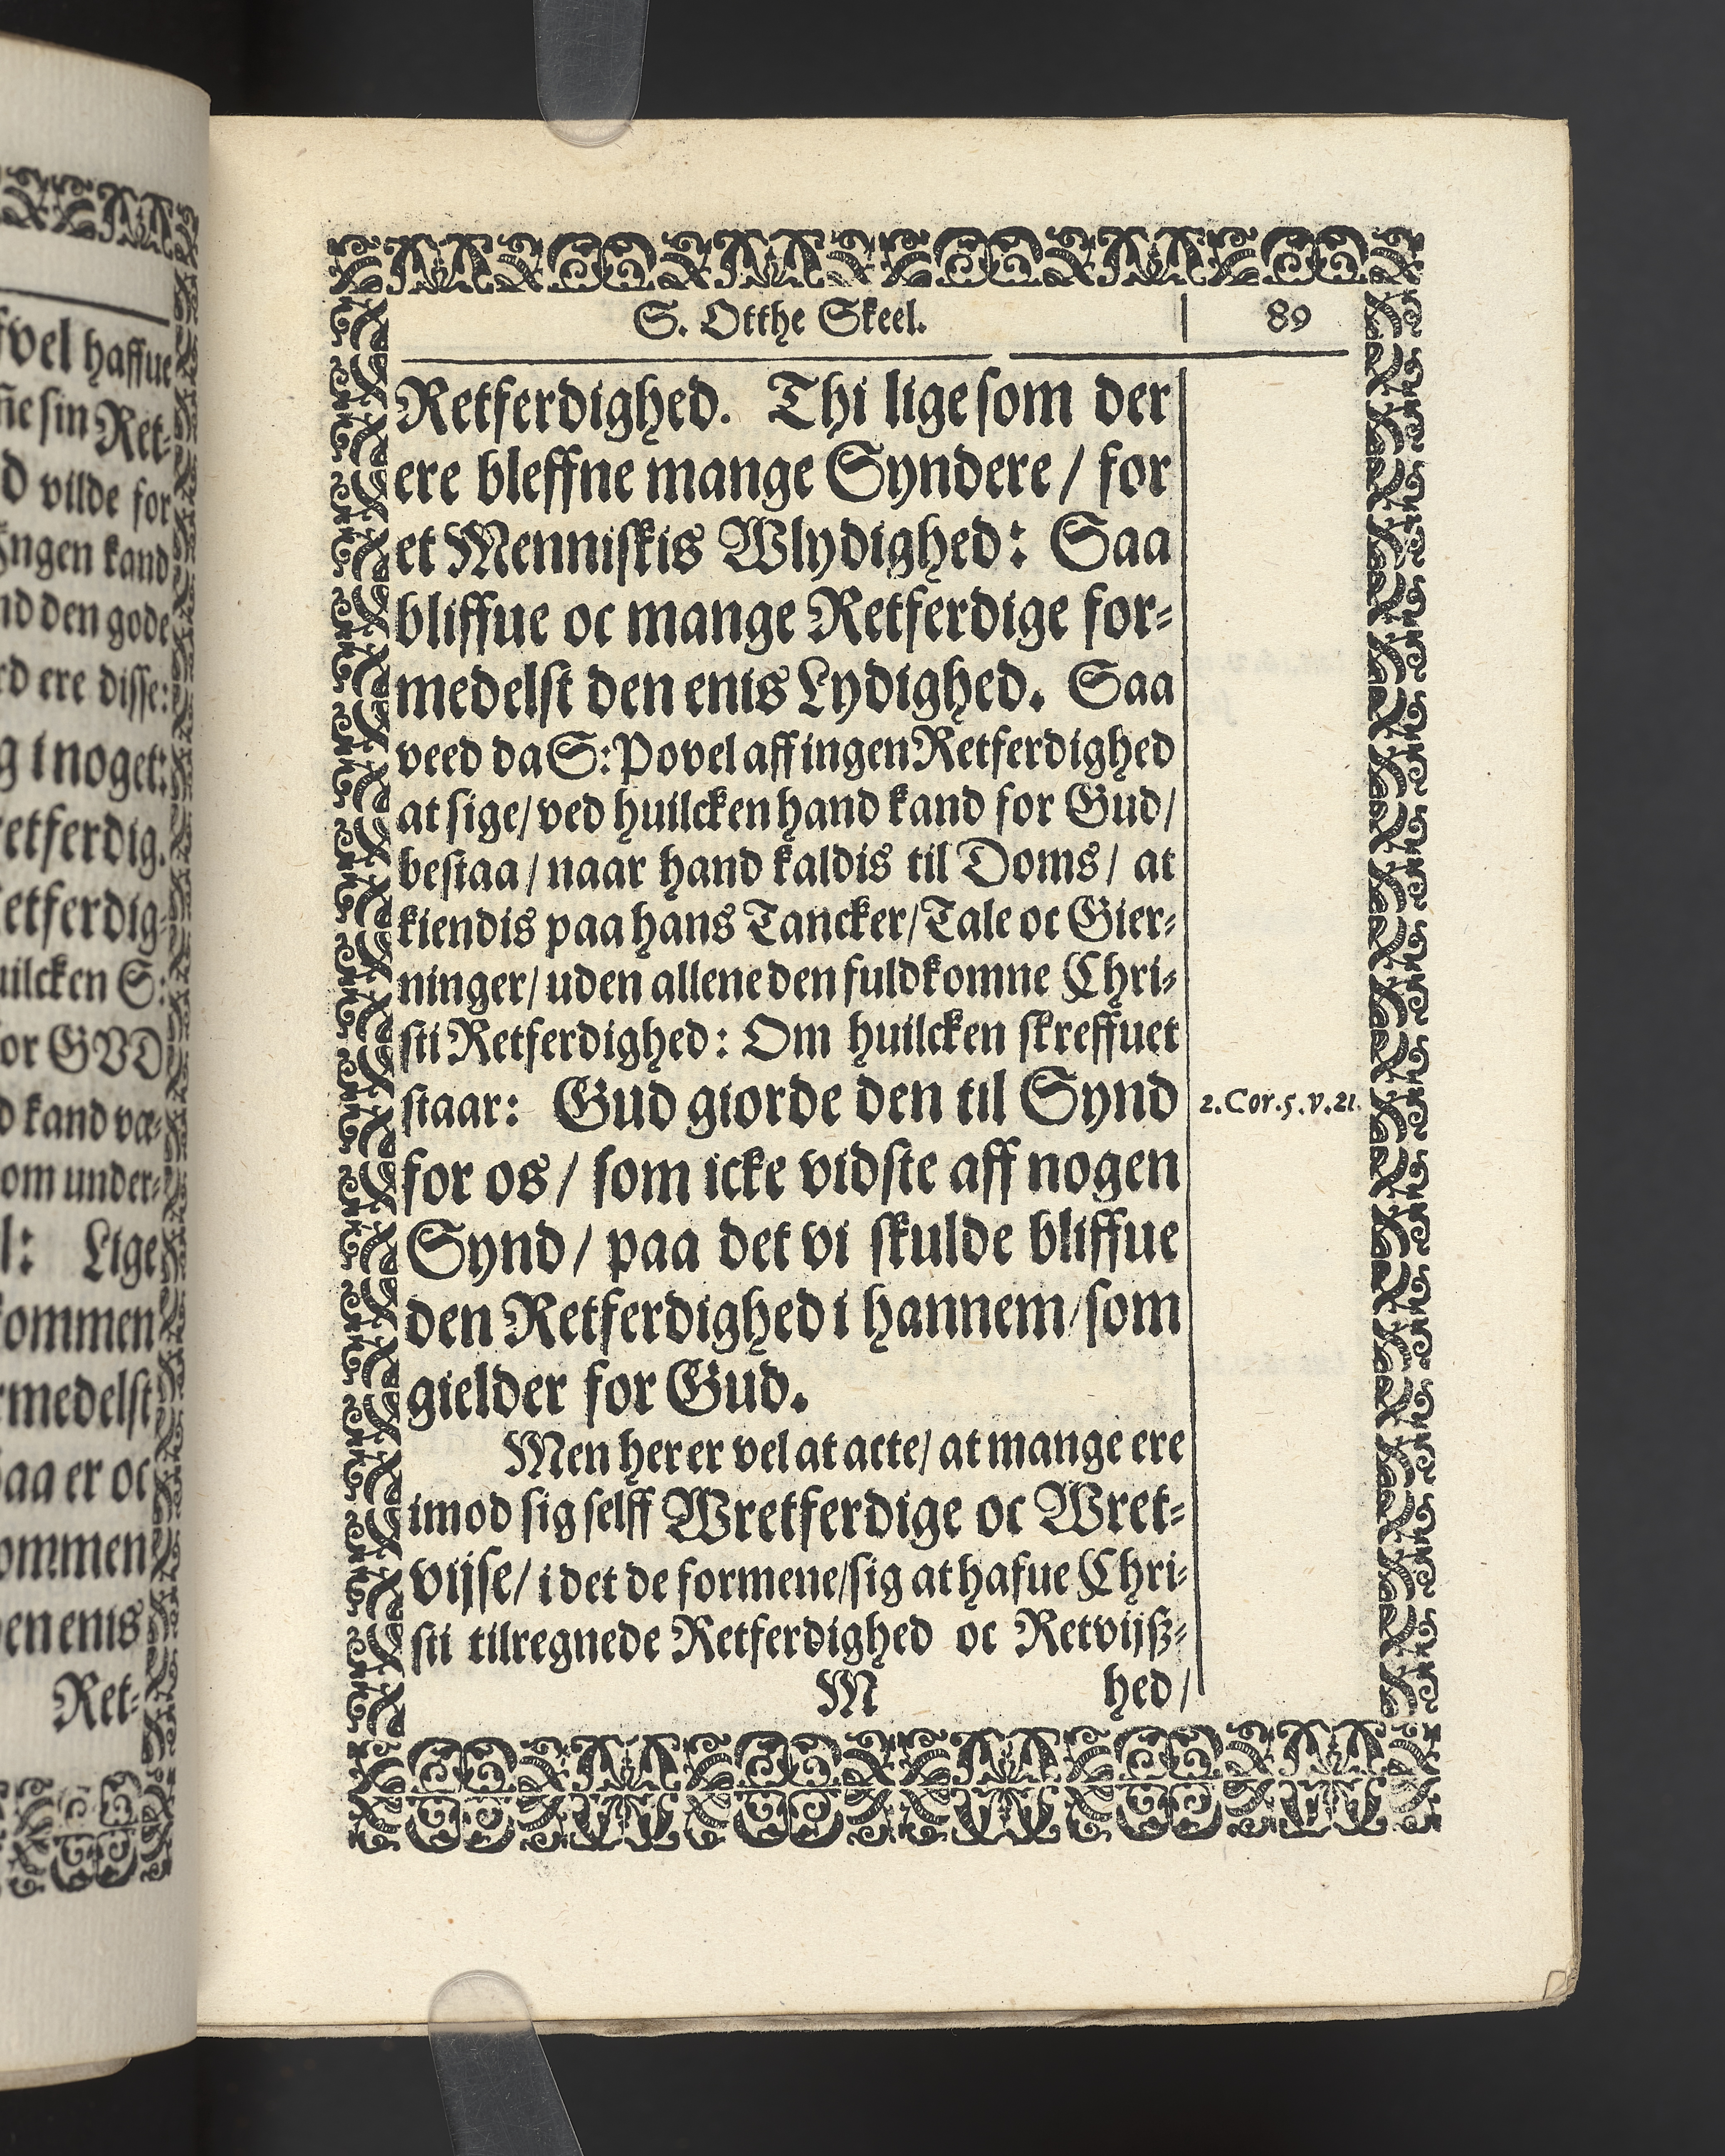 fvel haffue
ñe sin Ret-
d vilde for
Ingen kand
nd den gode
rd ere disse:
g i noget:
retferdig.
Retferdig
uilcken S:
for GVD
d kand væ-
som under-
l: Lige
kommen
rmedelst
Saa er oc
kommen
den enis
Ret-
S. Otthe Skeel.
89
Retferdighed. Thi lige som der
ere bleffne mange Syndere / for
et Menniskis Wlydighed: Saa
bliffue oc mange Retferdige for-
medelst den enis Lydighed. Saa
veed da S: Povel aff ingen Retferdighed
at sige / ved huilcken hand kand for Gud /
bestaa / naar hand kaldis til Doms / at
kiendis paa hans Tancker / Tale oc Gier-
ninger / uden allene den fuldkomne Chri-
sti Retferdighed: Om huilcken skreffuet
staar: Gud giorde den til Synd
2. Cor. 5. v. 21.
for os / som icke vidste aff nogen
Synd / paa det vi skulde bliffue
den Retferdighed i hannem / som
gielder for Gud.
Men her er vel at acte / at mange ere
imod sig selff Wretferdige oc Wret-
vijse / i det de formene / sig at hafue Chri-
sti tilregnede Retferdighed oc Retvijß-
M
hed /